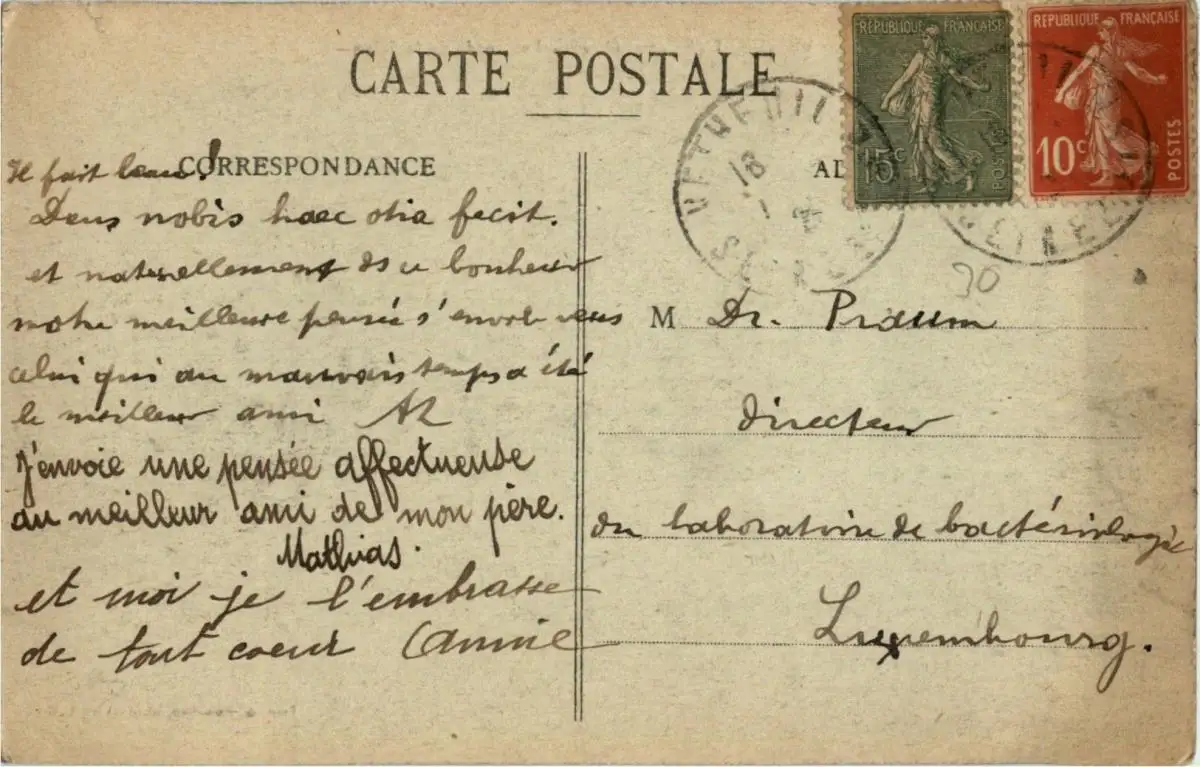 CARTE POSTALE
CORRESPONDANCE
Il fait beau!
Deus nobis haec otia fecit.
et naturellement ds ce bonheur
notre meilleure pensée s'envole vers
celui qui au mauvais temps a été
le meilleur ami
J'envoie une pensée affectueuse
au meilleur ami de mon père.
Mathias.
et moi je l'embrasse
de tout coeur Cannie
RÉPUBLIQUE FRANÇAISE
15c
POSTES
RÉPUBLIQUE FRANÇAISE
10c
POSTES
VETHEUIL
18
30
M Dr. Praum
directeur
du laboratoire de bactériologie
Luxembourg.